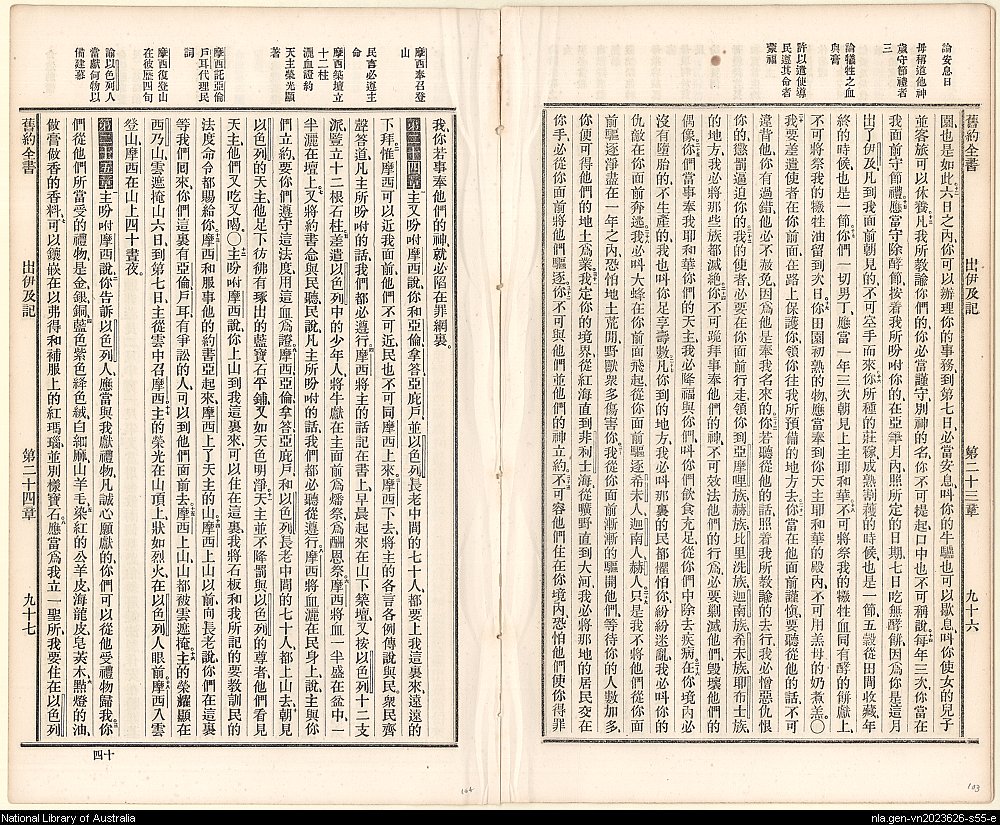 論安息日
毋稱道他神
歲守節禮者
三
論犧牲之血
與膏
許以遣使導
民遵其命者
蒙福
舊約全書 出伊及記 第二十三章 九十六
園也是如此六日之內你可以辦理你的事務到第七日必當安息叫你的牛驢也可以歇息叫你使女的兒子
並客旅可以休養凡我所教諭你們的你必當謹守別神的名你不可提起口中也不可稱說每年三次你當在
我面前守節禮應當守除酵節按着我所吩咐你的在亞筆月內照所定的日期七日吃無酵餅因爲你是這月
出了伊及凡到我面前朝見的不可空手而來你所種的莊稼成熟割穫的時候也是一節五穀從田間收藏年
終的時候也是一節你們一切男丁應當一年三次朝見上主耶和華不可將祭我的犧牲血同有酵的餅獻上
不可將祭我的犧牲油留到次日你田園初熟的物應當奉到你天主耶和華的殿內不可用羔母的奶煮羔〇
我要差遣使者在你前面在路上保護你領你往我所預備的地方去你當在他面前謹愼要聽從他的話不可
違背他你有過錯他必不赦免因爲他是奉我名來的你若聽從他的話照着我所教諭的去行我必憎惡仇恨
你的懲罰逼迫你的我的使者必要在你面前行走領你到亞摩哩族赫族比里洗族迦南族希未族耶布士族
的地方我必將那些族都滅絕你不可跪拜事奉他們的神不可效法他們的行爲必要剿滅他們毀壞他們的
偶像你們當事奉我耶和華你們的天主我必降福與你們叫你們飲食充足從你們中除去疾病在你境內必
沒有墮胎的不生產的我也叫你足享壽數凡你到的地方我必叫那裏的民都懼怕你紛紛迷亂我必叫你的
仇敵在你面前奔逃我必叫大蜂在你前面飛起從你面前驅逐希未人迦南人赫人只是我不將他們從你面
前驅逐淨盡在一年之內恐怕地土荒閒野獸衆多傷害你我從你面前漸漸的驅開他們等待你的人數加多
你便可得他們的地土爲業我定你的境界從紅海直到非利士海從曠野直到大河我必將那地的居民交在
你手必從你面前將他們驅逐你不可與他們並他們的神立約不可容他們住在你境內恐怕他們使你得罪
摩西奉召登
山
民言必遵主
命
摩西築壇立
十二柱
灑血證約
天主榮光顯
著
摩西託亞倫
戶耳代理民
詞
摩西復登山
在彼歷四旬
諭以色列人
當獻何物以
備建幕
我你若事奉他們的神就必陷在罪網裏
第二十四章主又吩咐摩西說你和亞倫拿答亞庇戶並以色列長老中間的七十人都要上我這裏來遠遠的
下拜惟摩西可以近我面前他們不可近民也不可同摩西上來摩西下去將主的各言各例傳說與民衆民齊
聲答道凡主所吩咐的話我們都必遵行摩西將主的話記在書上早晨起來在山下築壇又按以色列十二支
派豎立十二根石柱差遣以色列中的少年人將牛獻在主面前爲燔祭爲酬恩祭摩西將血一半盛在盆中一
半灑在壇上又將約書念與民聽民說凡主所吩咐的話我們都必聽從遵行摩西將血灑在民身上說主與你
們立約要你們遵守這法度用這血爲證摩西亞倫拿答亞庇戶和以色列長老中間的七十人都上山去朝見
以色列的天主他足下彷彿有琢出的藍寶石平鋪又如天色明淨天主並不降罰與以色列的尊者他們看見
天主他們又吃又喝〇主吩咐摩西說你上山到我這裏來可以住在這裏我將石板和我所記的要敎訓民的
法度命令都賜給你摩西和服事他的約書亞起來摩西上了天主的山摩西上山以前向長老說你們在這裏
等我們囘來你們這裏有亞倫戶耳有爭訟的人可以到他們面前去摩西上山山都被雲遮掩主的榮耀顯在
西乃山雲遮掩山六日到第七日主從雲中召摩西主的榮光在山頂上狀如烈火在以色列人眼前摩西入雲
登山摩西在山上四十晝夜
第二十五章主吩咐摩西說你告訴以色列人應當與我獻禮物凡誠心願獻的你們可以從他受禮物歸我你
們從他們所當受的禮物是金銀銅藍色紫色絳色絨白細麻山羊毛染紅的公羊皮海龍皮皂莢木點燈的油
做膏做香的香料可以鑲嵌在以弗得和補服上的紅瑪瑙並別樣寶石應當爲我立一聖所我要住在以色列
舊約全書 出伊及記 第二十四章 九十七
四十
104
103
National Library of Australia
nla.gen-vn2023626-s55-e